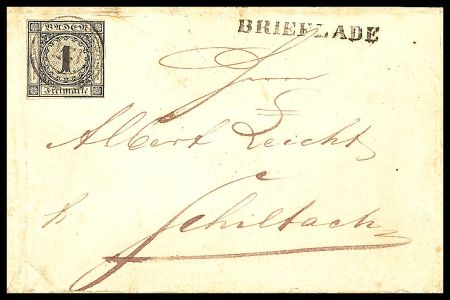 BRIEFLADE
BADEN
1
Freimarke
Herrn
Albert Leicht
Schiltach